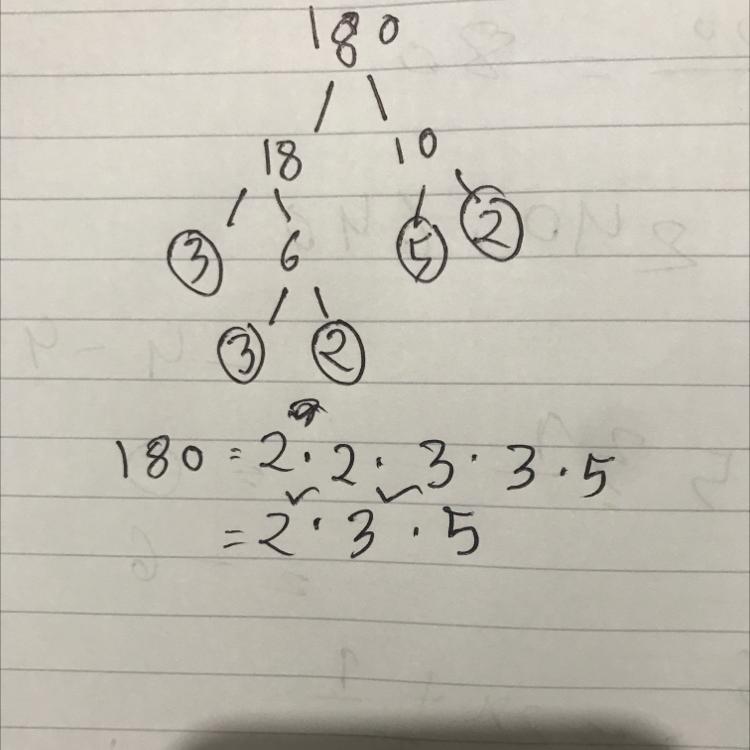 180
18 10
3 6 5 2
3 2
180 = 2 · 2 · 3 · 3 · 5
= 2 · 3 · 5